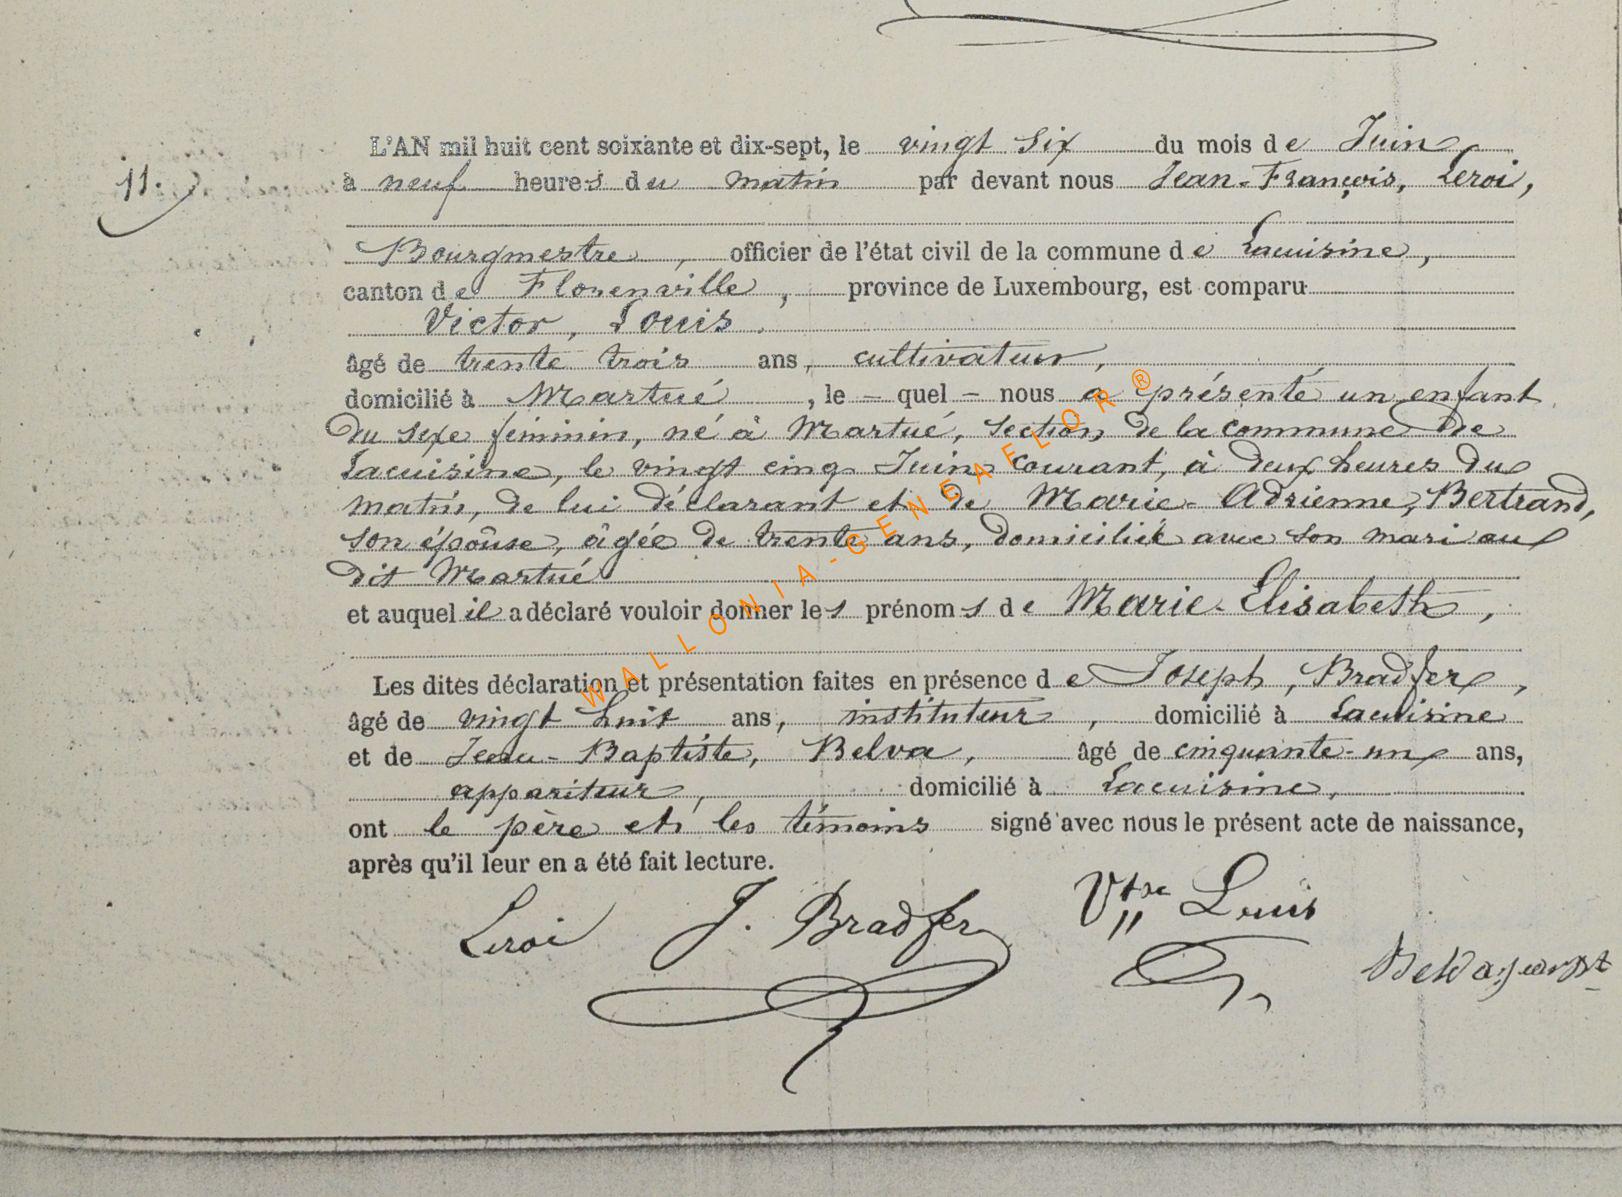 11.
L'AN mil huit cent soixante et dix-sept, le vingt six du mois de Juin
à neuf heures du matin par devant nous Jean-François, Leroi,
Bourgmestre, officier de l'état civil de la commune de Lacuisine,
canton de Florenville, province de Luxembourg, est comparu
Victor, Louis.
âgé de trente trois ans, cultivateur,
domicilié à Martué, le - quel - nous a présenté un enfant
du sexe féminin, né à Martué, section de la commune de
Lacuisine, le vingt cinq Juin courant, à deux heures du
matin, de lui déclarant et de Marie-Adrienne, Bertrand,
son épouse, âgée de trente ans, domiciliée avec son mari au
dit Martué
et auquel il a déclaré vouloir donner les prénoms de Marie-Elisabeth,
Les dites déclaration et présentation faites en présence de Joseph, Bradfer,
âgé de vingt huit ans, instituteur, domicilié à Lacuisine
et de Jean-Baptiste, Belva, âgé de cinquante-un ans,
appariteur, domicilié à Lacuisine,
ont le père et les témoins signé avec nous le présent acte de naissance,
après qu'il leur en a été fait lecture.
Leroi J. Bradfer Vtor Louis
Belva
WALLONIA-GENEAELOR®